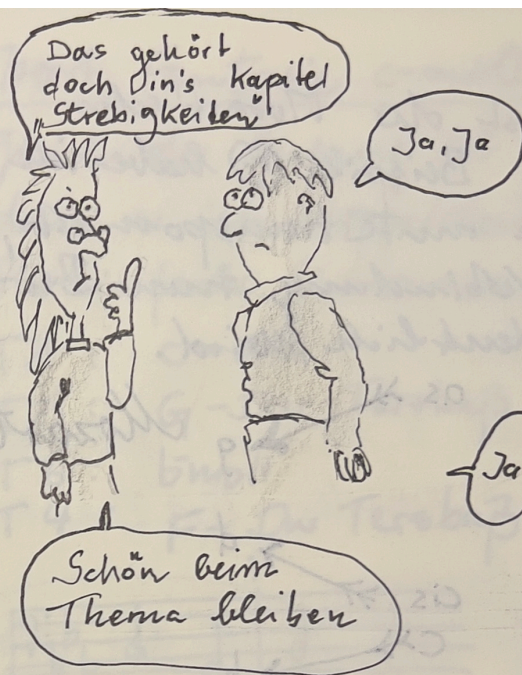 Das gehört
doch in's Kapitel
Strebigkeiten"
Ja, Ja
Ja
Schön beim
Thema bleiben